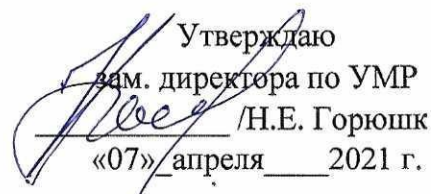 Утверждаю
зам. директора по УМР
/Н.Е. Горюшк
«07» апреля 2021 г.